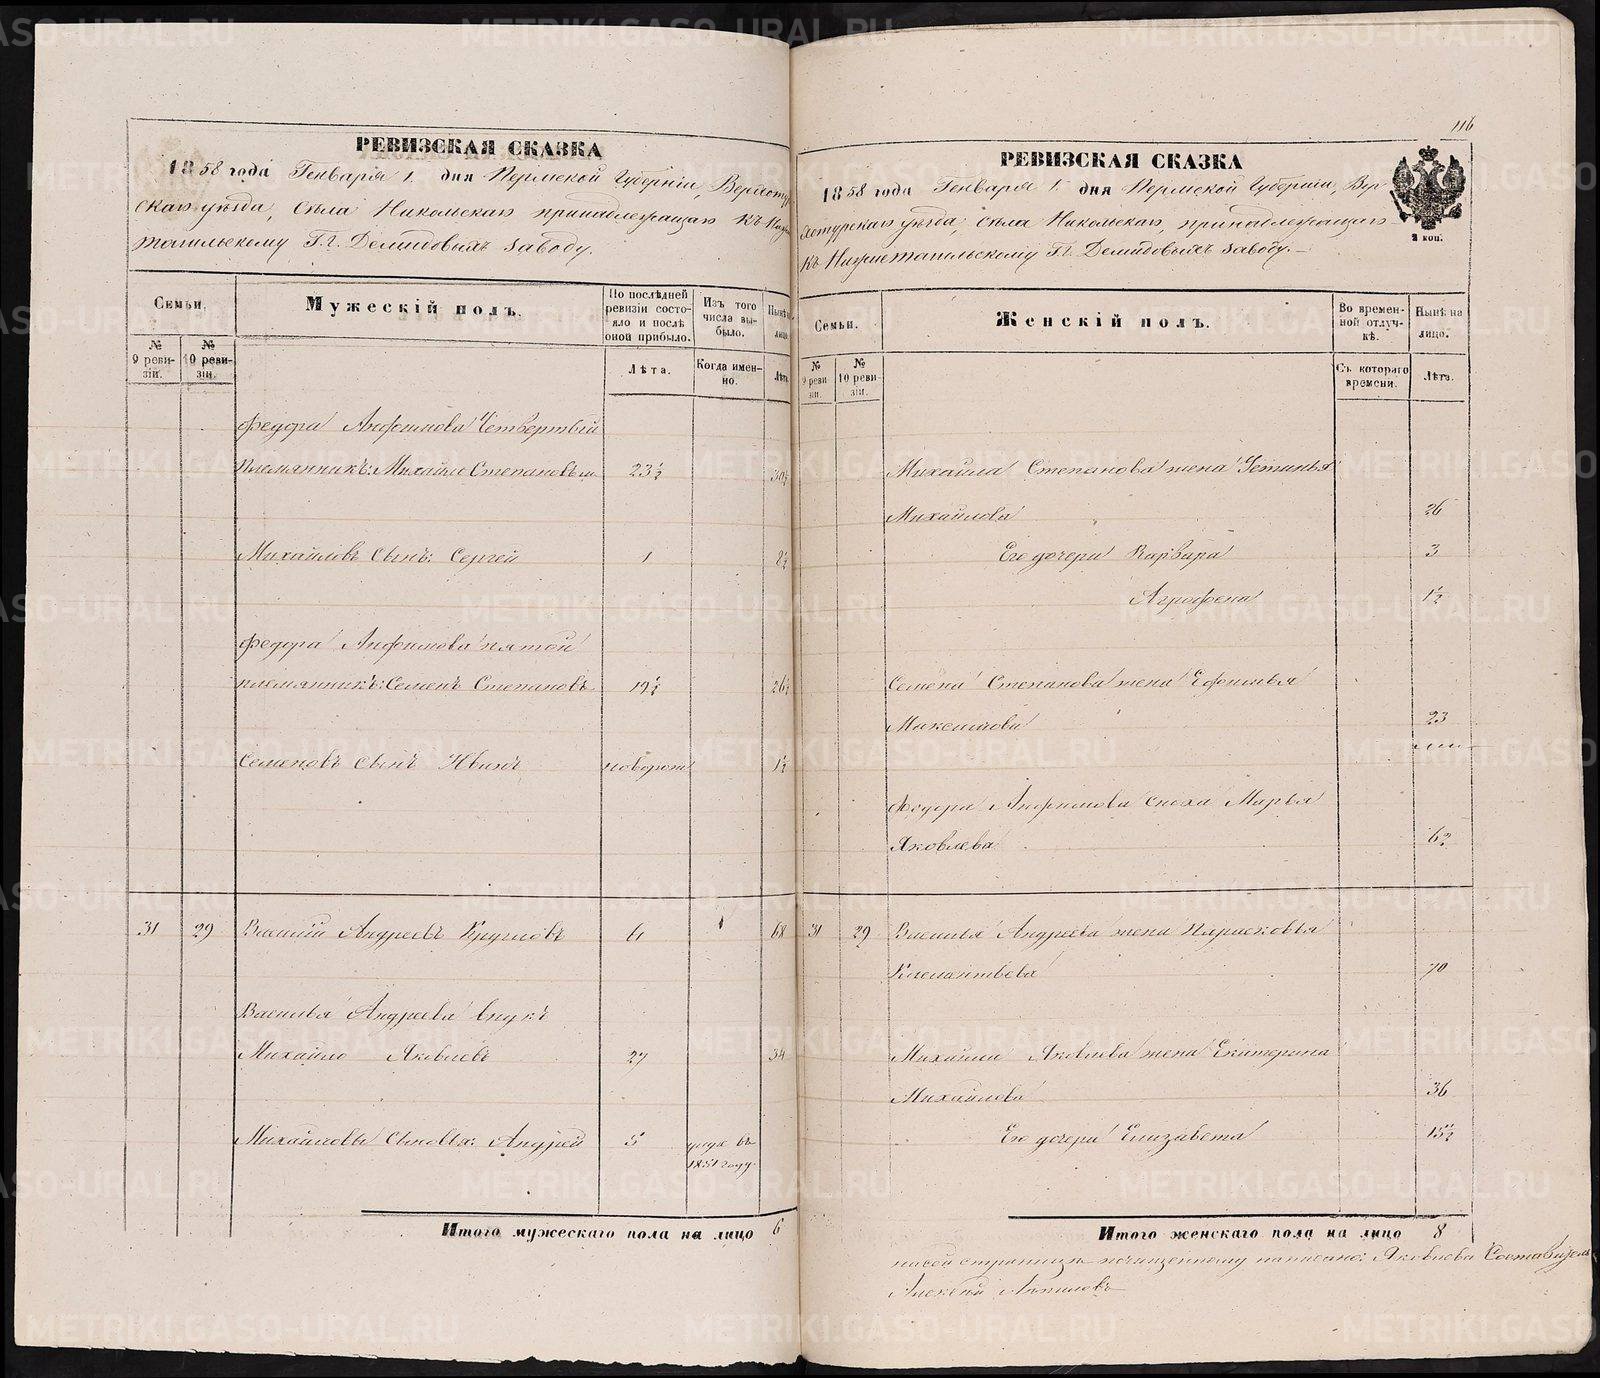 РЕВИЗСКАЯ СКАЗКА
1858 года Генваря 1. дня Пермской Губерніи, Верхотур
скаго уѣзда, села Никольскаго принадлежащаго къ Нижне
тагильскому Гг. Демидовыхъ заводу.
Семьи.
Мужескій полъ.
По послѣдней ревизіи состояло и послѣ оной прибыло.
Изъ того числа выбыло.
Нынѣ на лицо.
№ 9 ревизіи.
№ 10 ревизіи.
Лѣта.
Когда именно.
Лѣта.
Федора Анфимова Четвертый
племянникъ: Михайло Степановъ 23½ 30½
Михайловъ Сынъ: Сергей 1 8½
Федора Анфимова пятой
племянникъ: Семенъ Степановъ 19½ 26½
Семеновъ Сынъ Иванъ новорож 1½
31 29 Василій Андреевъ Кругловъ 61 68
Василья Андреева внукъ
Михайло Яковлевъ 27 34
Михайловы Сыновья: Андрей 5 умре въ
1851 году.
Итого мужескаго пола на лицо 6
116
РЕВИЗСКАЯ СКАЗКА
1858 года Генваря 1. дня Пермской Губерніи, Вер-
хотурскаго уѣзда, села Никольскаго, принадлежащаго
къ Нижнетагильскому Гг. Демидовыхъ заводу.—
2 коп.
Семьи.
Женскій полъ.
Во временной отлучкѣ.
Нынѣ на лицо.
№ 9 ревизіи.
№ 10 ревизіи.
Съ котораго времени.
Лѣта.
Михайла Степанова жена Устинья
Михайлова 26
Его дочери Варвара 3
Агрофена 1½
Семена Степанова жена Ефимья
Максимова 23
Федора Анфимова сноха Марья
Яковлева 62
31 29 Василья Андреева жена Парасковья
Климентьева 70
Михайла Яковлева жена Екатерина
Михайлова 36
Его дочери Елизавета 15½
Итого женскаго пола на лицо 8
на сей страницѣ по чищенному написано: Яковлева Составитель
Алексей
METRIKI.GASO-URAL.RU